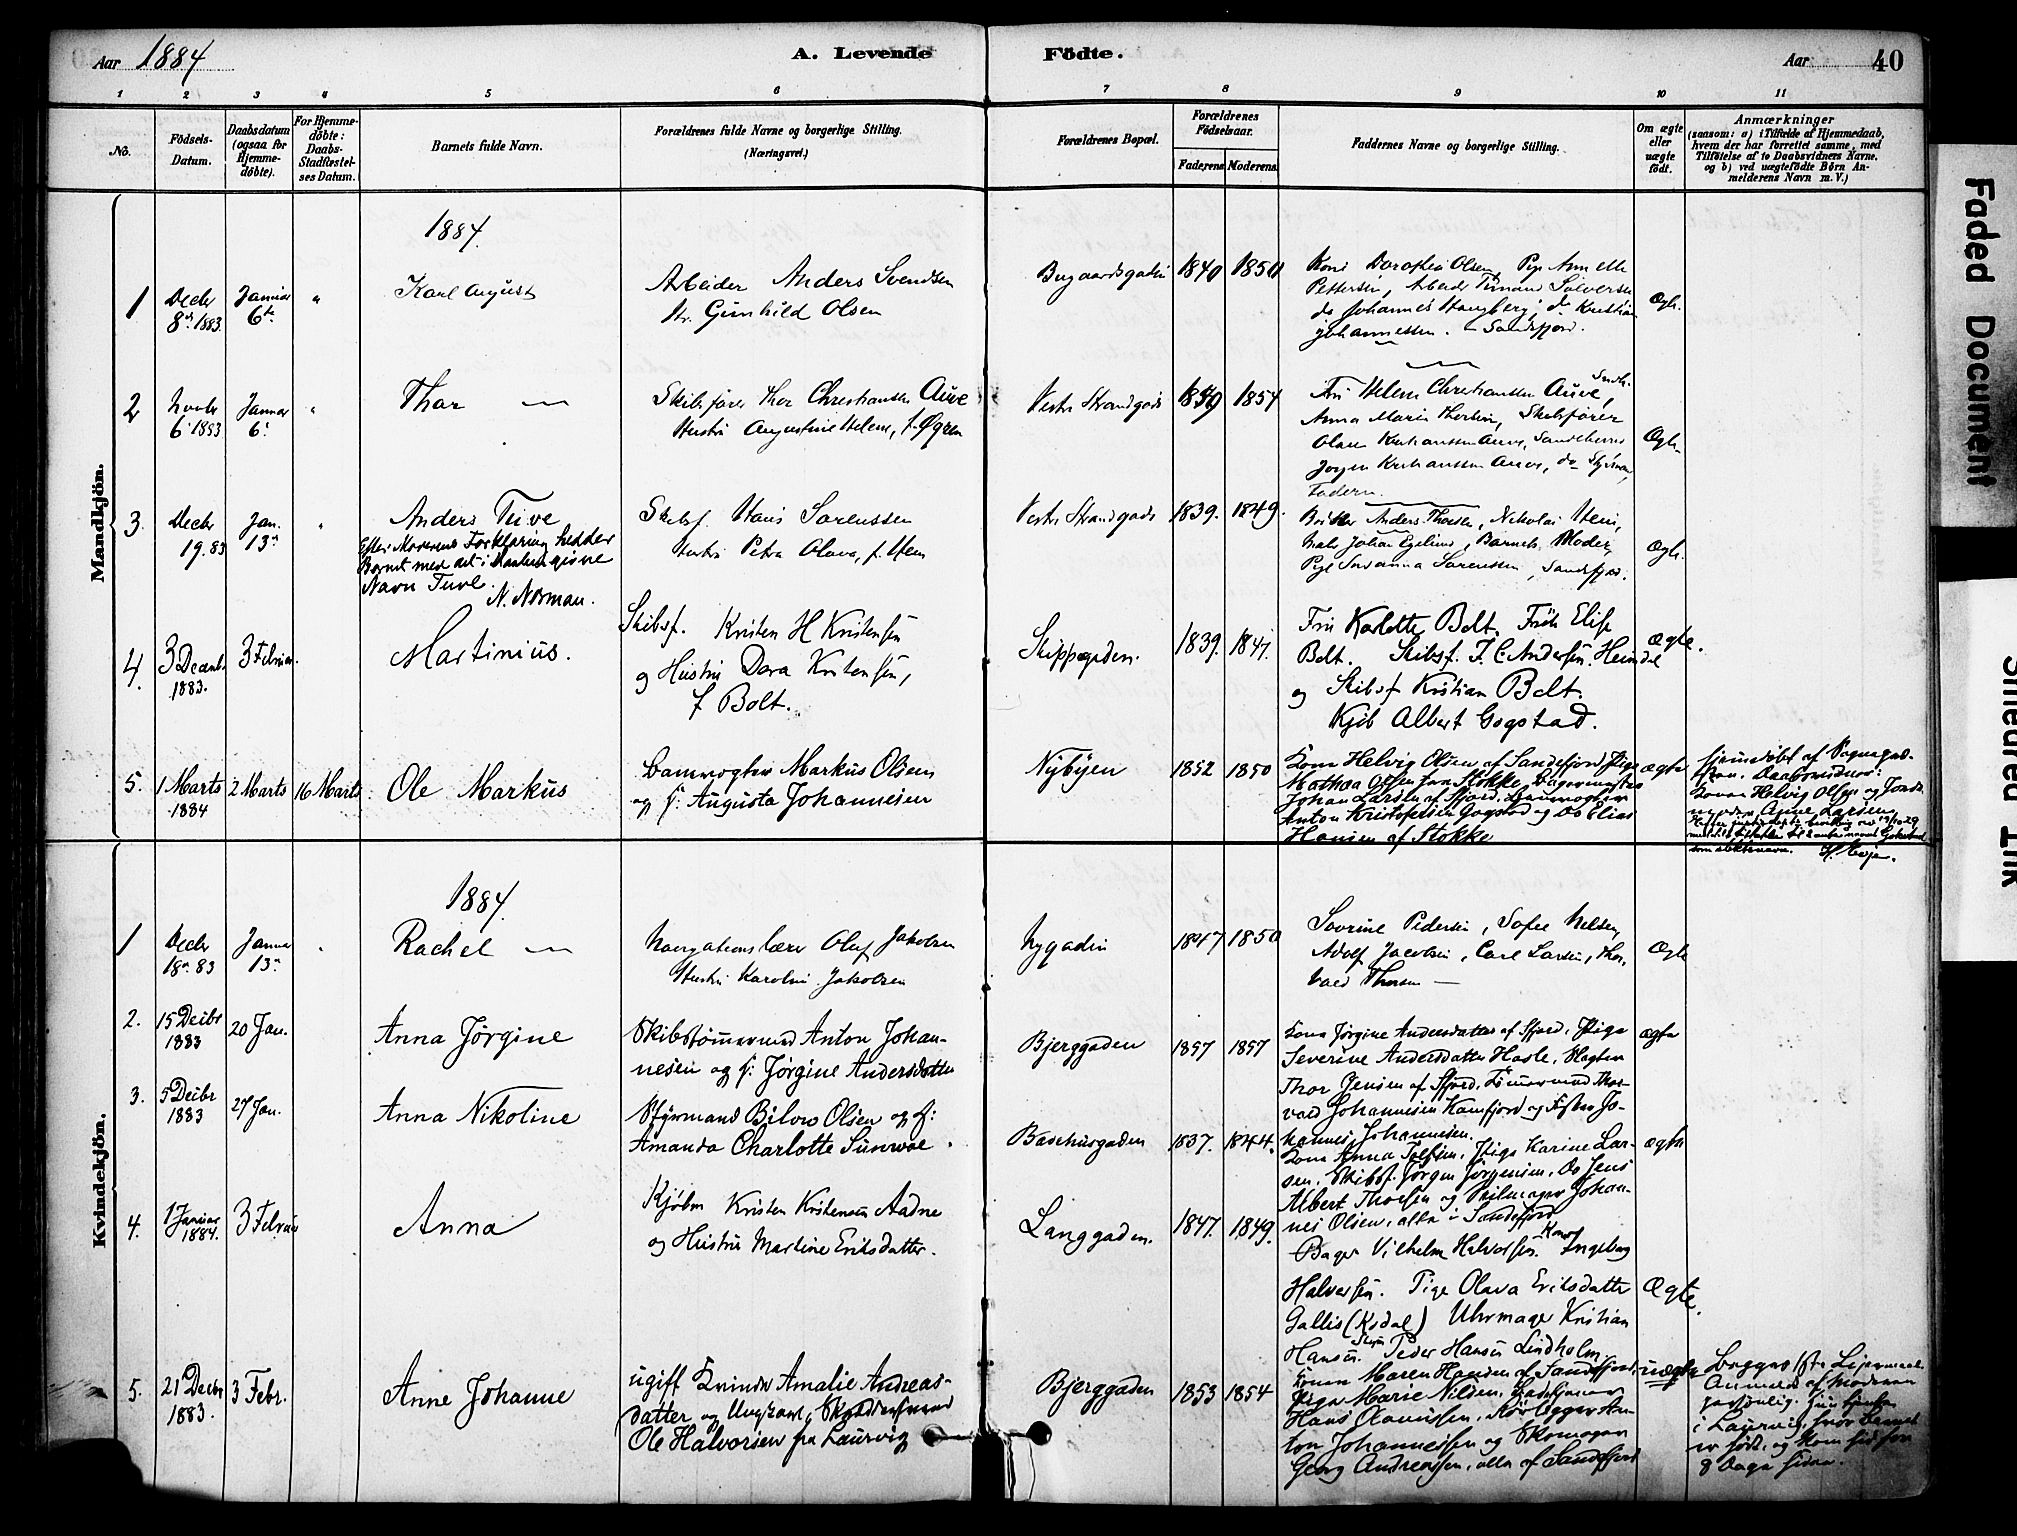 Aar 1884
A. Levende
Födte.
Aar
40
1 2 3 4 5 6 7 8 9 10 11
No.
Födsels-Datum.
Daabsdatum (ogsaa for Hjemme-döbte).
For Hjemme-döbte: Daabs-Stadfæstel-ses Datum.
Barnets fulde Navn.
Forældrenes fulde Navne og borgerlige Stilling.
(Næringsvei.)
Forældrenes Bopæl.
Forældrenes Födselsaar.
Faderens
Moderens
Faddernes Navne og borgerlige Stilling.
Om ægte eller uægte födt.
Anmærkninger
(saasom: a) i Tilfælde af Hjemmedaab,
hvem der har forrettet samme, med
Tilföielse af to Daabsvidners Navne.
og b) ved uægtefödte Börn An-
melderens Navn m. V.)
Mandkjön.
1884.
1 Decbr 8de 1883. Januar 6te " Karl August
Arbeider Anders Svendsen
Gunhild Olsen
1840 1850
Kone Dorothea Olsen, Pige Annette
Pettersen, Arbeider
do Johannes do Kristian
Johannessen. Sandefjord.
Ægte.
2 Novbr 6' 1883 Januar 6' " Thor
Skibsfører Thor Christiansen Auve
Hustru Augustine Helene, f. Øgren
Vestre Strandgade 1854
Fru Helene Christiansen Auve,
Anna Marie Skibsfører
Auve, Sandeherred
Jørgen Auve, do
Faderen.
Ægte
3. Decbr 19. 83 Jan. 13de " Anders Tuve
Efter Moderens Forklaring hedder
Barnet med det i Daaben givne
Navn Tuve. N. Norman.
Skibsf. Hans Sørenssen
Hustru Petra Olava, f.
Vestre Strandgade 1839. 1849.
Anders Thorsen, Nikolai
Johan Egelund, Barnets Moder,
Pige Susanna Sørenssen, Sandefjord.
Ægte.
4. 3 Decemb. 1883. 3 Februar. Martinius.
Skibsf. Kristen H Kristensen
og Hustru Dora Kristensen,
f Bolt.
Skippegaden. 1839. 1847.
Fru Karlotte Bolt. Frøk Elise
Bolt. Skibsf. J. C. Andersen. Heimdal
og Skibsf Kristian Bolt.
Kjöb Albert Gogstad.
Ægte.
5. 1 Marts 1884 2 Marts 16 Marts Ole Markus
Banevogter Markus Olsen
og H: Augusta Johannesen
Nybyen 1852 1850
Kone Helvig Olsen af Sandefjord, Pige
Mathea Olsen fra Stokke, Bagermester
Johan Larsen af Sfjord, Banevogter
Anton Kristofersen Gogstad og do Elias
Hansen af Stokke
ægte
Hjemmedøbt af
Daabsvidner:
Konen Helvig Olsen og Jorde-
moder Anne Larsen
19/10 29
Gokstad
som slektsnavn.
Kvindekjön.
1884.
1 Decbr 18de 83 Januar 13de " Rachel
Navigationslærer Oluf Jakobsen
Hustru Karoline Jakobsen
Nygaden 1847 1850
Severine Pedersen, Sofie Nelsen,
Adolf Jacobsen, Carl Larsen, Thor-
vald Thorsen
Ægte
2. 15 Decbr 1883 20 Jan. Anna Jørgine
Skibstømmermand Anton Johan-
nesen og H: Jørgine Andersdatter
Bjerggaden 1857 1857
Kone Jørgine Andersdatter af Sfjord, Pige
Severine Andersdatter Hasle, Slagter
Thor Jensen af Sfjord, Tømmermand Thor-
vald Johannesen Kamfjord og Jo-
hannes Johannesen.
ægte
3. 5 Decbr 1883 27 Jan. Anna Nikoline
Styrmand Olsen og H:
Amanda Charlotte Sunvoe
1837. 1844.
Kone Anna Pige Karine Lar-
sen, Skibsf. Jørgen Jørgensen, do Jens
Albert Thorsen og Seilmager Johan-
nes Olsen, alle i Sandefjord
ægte
4. 1 Januar 1884. 3 Februar Anna
Kjøbm Kristen Kristensen Aadne
og Hustru Martine Eriksdatter.
Langgaden. 1847. 1849.
Bager Vilhelm Halvorsen. Kone Ingeborg
Halvorsen. Pige Olava Eriksdatter
Gallis (Kodal) Uhrmager Kristian
Hansen. Styrm Peder Hansen Lindholm.
Ægte.
5. 21 Decbr 1883. 3 Febr. Anne Johanne
ugift Kvinde Amalie Andreas-
datter og Ungkarl,
Ole Halvorsen fra Laurvig
Bjerggaden 1853 1854
Konen Maren Hansen af Sandefjord,
Pige Marie Nilsen,
Hans Rørlægger An-
ton Johannessen og Skomager
Georg Andreassen, alle af Sandefjord
uægte
Begges 1ste Leiermaal.
Anmeldt af Moderen
personlig. Hun tjente
i Laurvig, hvor Barnet
er født, og kom hid for
8 Dage siden.
Faded Document
Smeared Ink